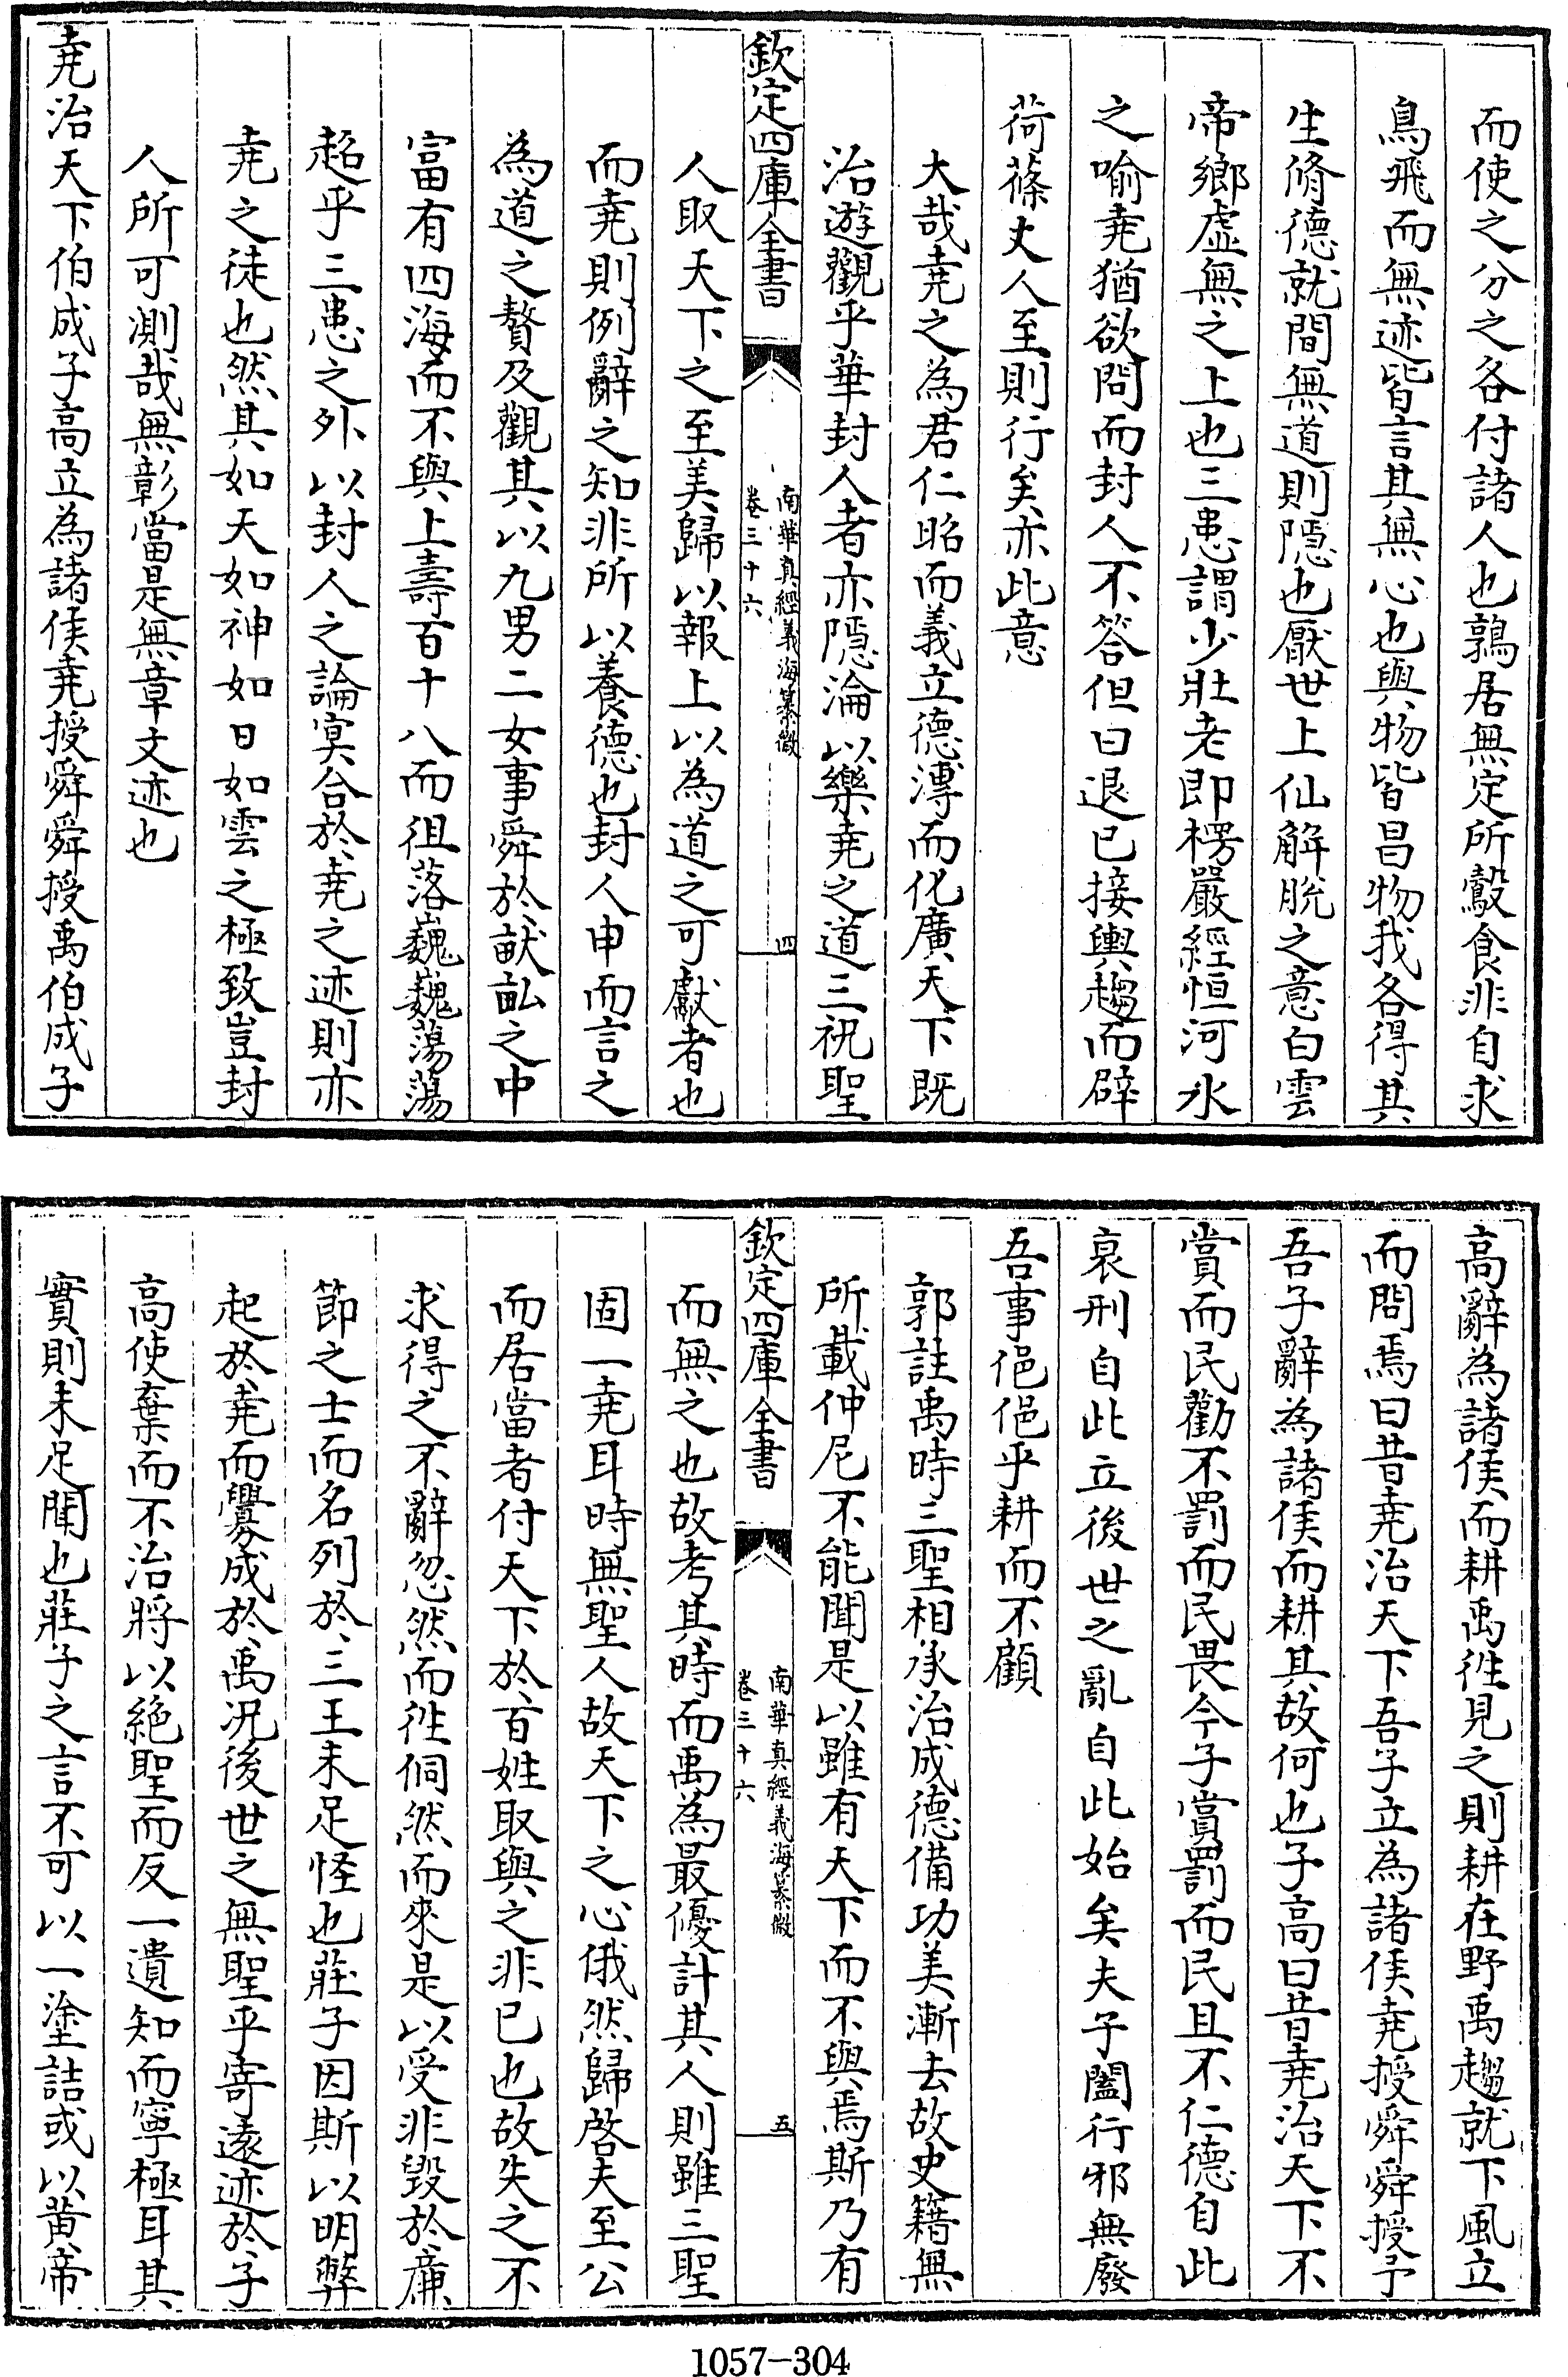 而使之分之各付諸人也鶉居無定所鷇食非自求
鳥飛而無迹皆言其無心也與物皆昌物我各得其
生脩德就間無道則隠也厭世上仙解脱之意白雲
帝鄉虚無之上也三患謂少壯老即楞嚴經恒河水
之喻堯猶欲問而封人不答但曰退已接輿趨而辟
荷蓧丈人至則行矣亦此意
大哉堯之為君仁昭而義立德溥而化廣天下既
治遊觀乎華封人者亦隠淪以樂堯之道三祝聖
欽定四庫全書
南華真經義海纂微
卷三十六
四
人取天下之至美歸以報上以為道之可獻者也
而堯則例辭之知非所以養德也封人申而言之
為道之贅及觀其以九男二女事舜於畎畝之中
富有四海而不與上壽百十八而徂落巍巍蕩蕩
超乎三患之外以封人之論㝠合於堯之迹則亦
堯之徒也然其如天如神如日如雲之極致豈封
人所可測哉無彰當是無章文迹也
堯治天下伯成子高立為諸侯堯授舜舜授禹伯成子
高辭為諸侯而耕禹徃見之則耕在野禹趨就下風立
而問焉曰昔堯治天下吾子立為諸侯堯授舜舜授予
吾子辭為諸侯而耕其故何也子高曰昔堯治天下不
賞而民勸不罰而民畏今子賞罰而民且不仁德自此
衰刑自此立後世之亂自此始矣夫子闔行邪無廢
吾事俋俋乎耕而不顧
郭註禹時三聖相承治成德備功美漸去故史籍無
所載仲尼不能聞是以雖有天下而不與焉斯乃有
欽定四庫全書
南華真經義海纂微
卷三十六
五
而無之也故考其時而禹為最優計其人則雖三聖
固一堯耳時無聖人故天下之心俄然歸啓夫至公
而居當者付天下於百姓取與之非已也故失之不
求得之不辭忽然而徃侗然而來是以受非毀於亷
節之士而名列於三王未足怪也莊子因斯以明弊
起於堯而釁成於禹况後世之無聖乎寄遠迹於子
高使棄而不治將以絶聖而反一遺知而寧極耳其
實則未足聞也莊子之言不可以一塗詰或以黄帝
1057-304